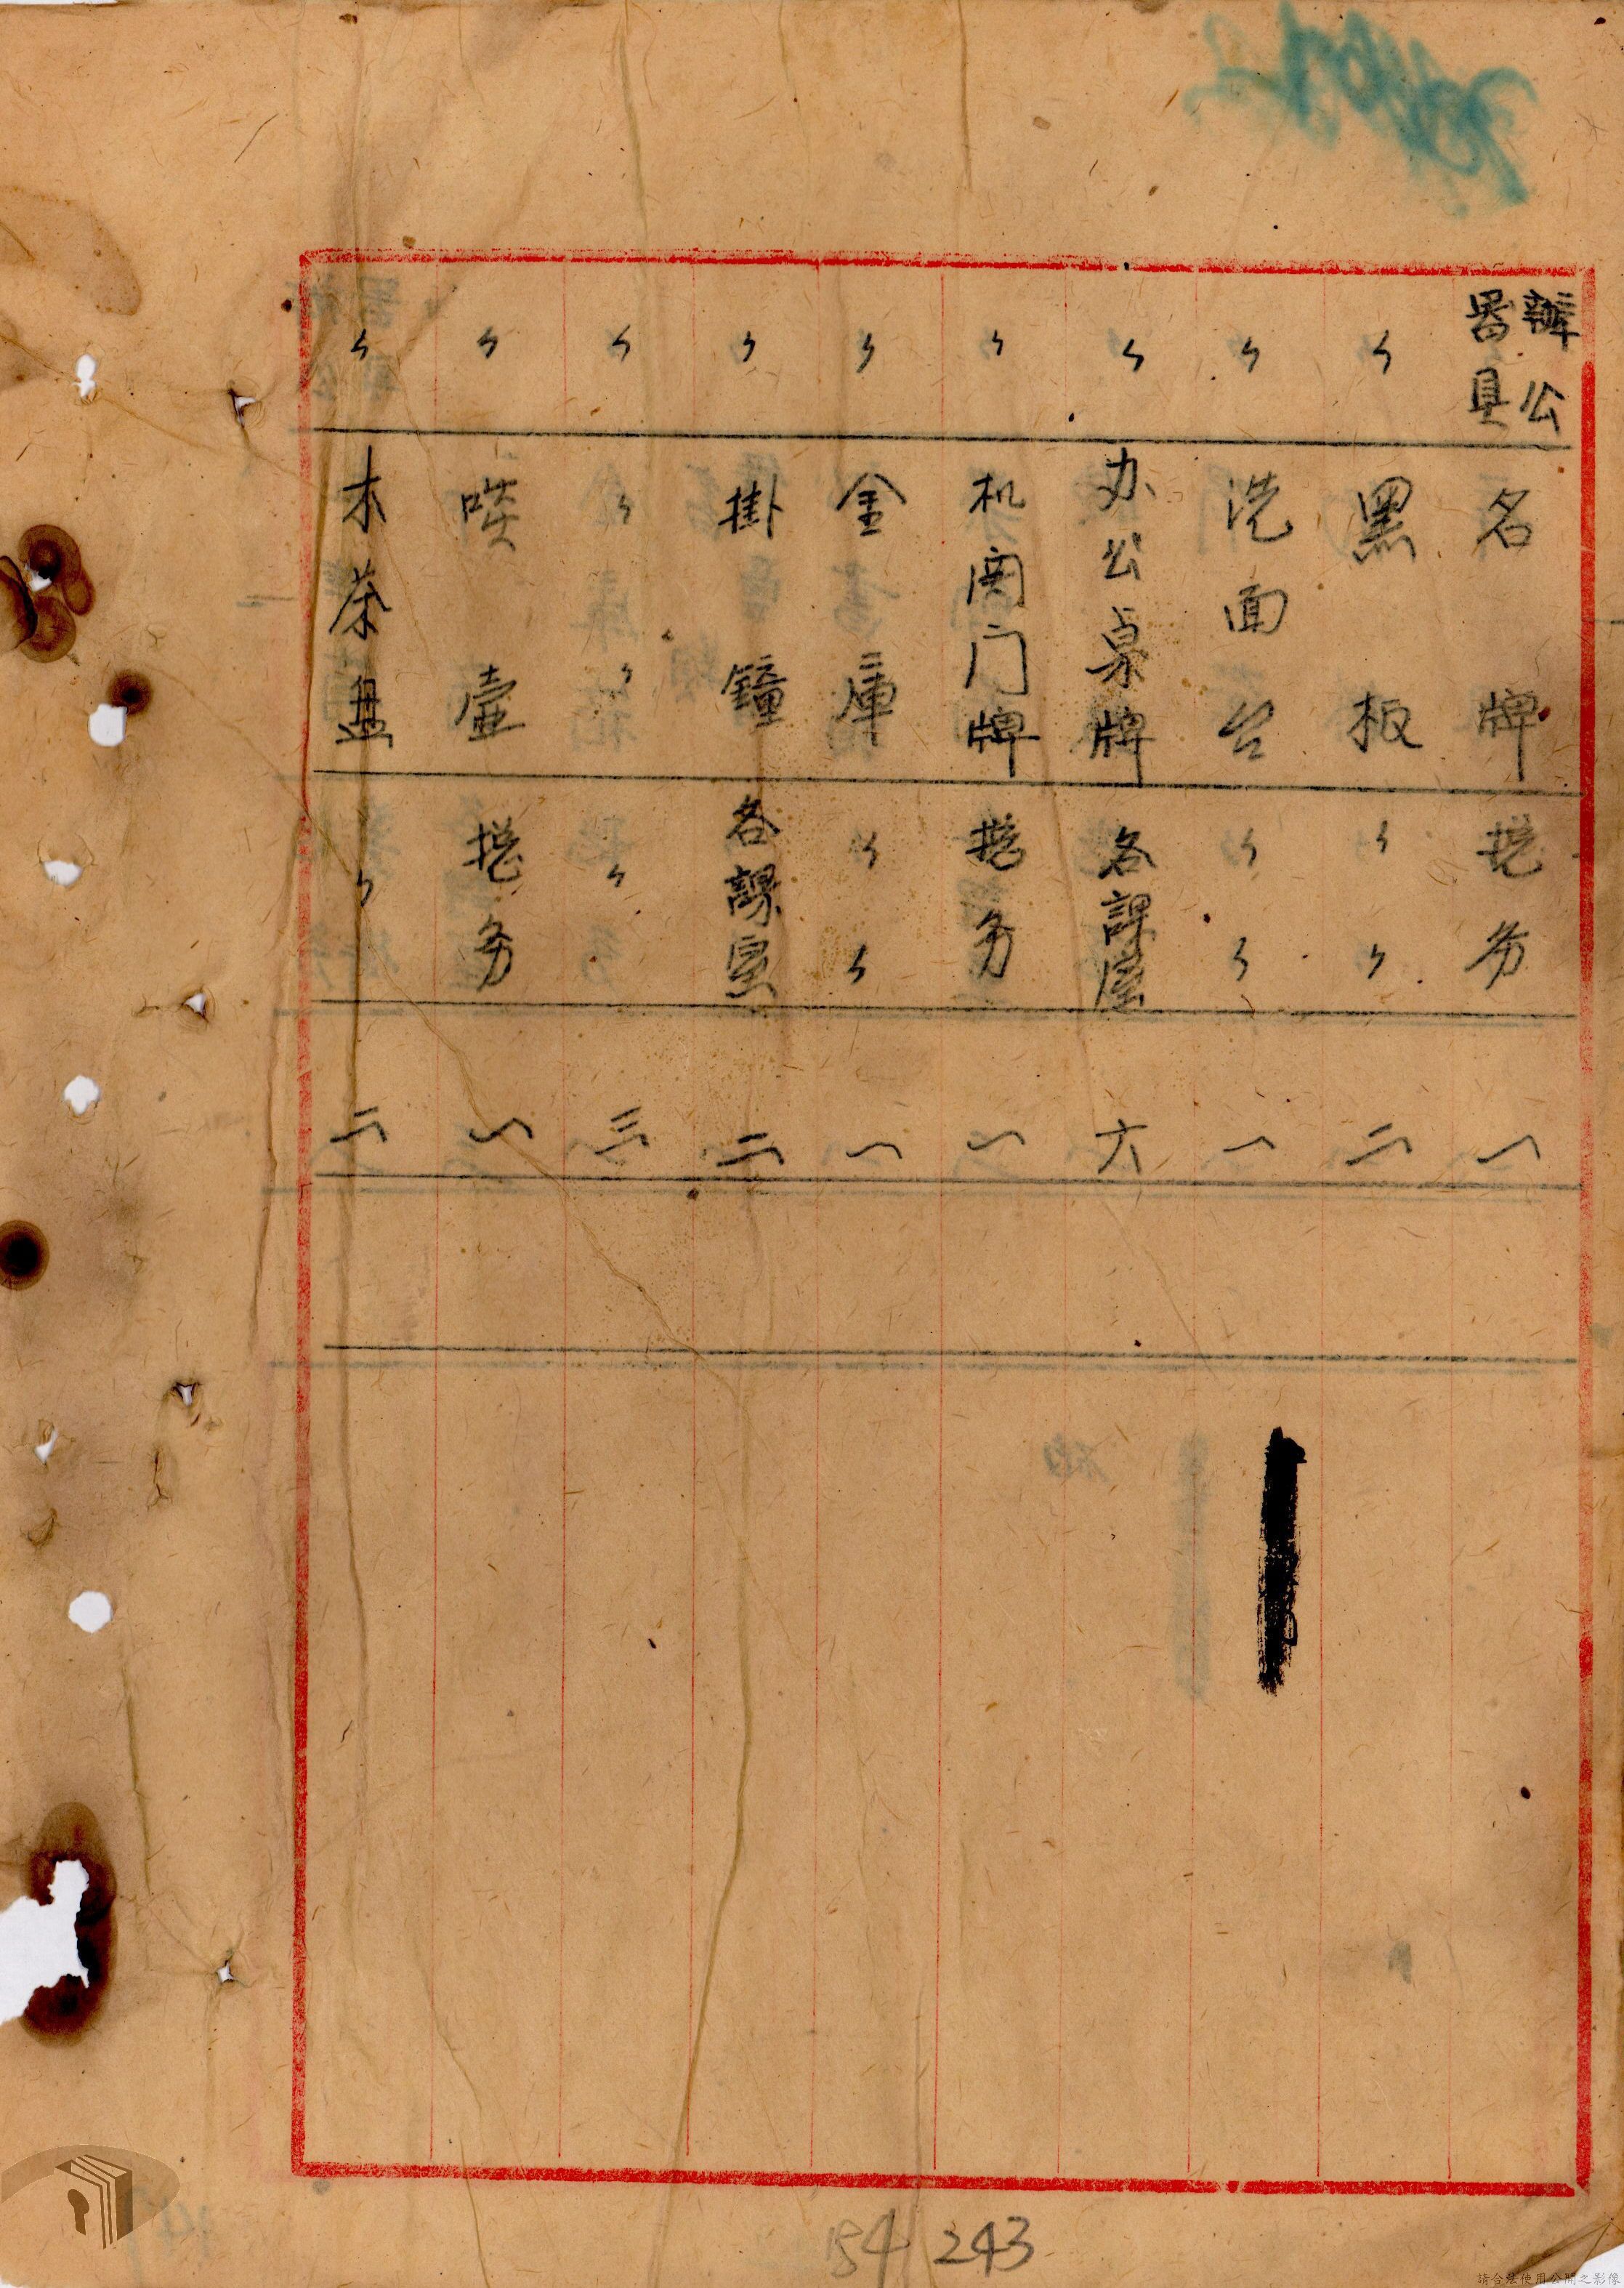 辦公器具 名牌 总务 一
〃 黑板 〃 〃 二
〃 洗面台 〃 〃 一
〃 办公桌牌 各課室 六
〃 机関门牌 总务 一
〃 金庫 〃 〃 一
〃 掛鐘 各課室 二
〃 〃 〃 〃 三
〃 痰壷 总务 一
〃 木茶盘 〃 二
154 243
請合法使用公開之影像